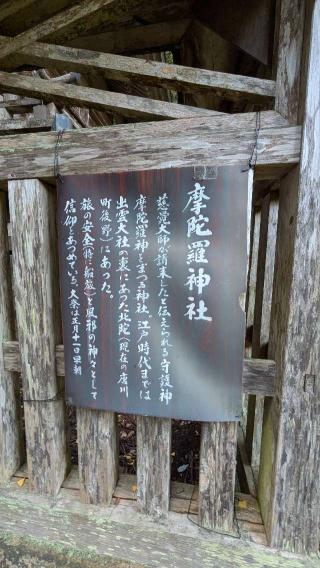 摩陀羅神社
慈覚大師が請来したと伝えられる守護神
摩陀羅神をまつる神社。江戸時代までは
出雲大社の裏にあった北院(現在の唐川
町後野)にあった。
旅の安全(特に船旅)と風邪の神々として
信仰をあつめている。大祭は正月十一日早朝